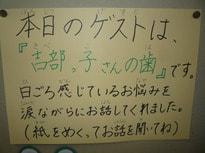 本日のゲストは、
『吉部っ子さんの歯』です。
日ごろ感じているお悩みを
涙ながらにお話してくれました。
(紙をめくってお話を聞いてね)